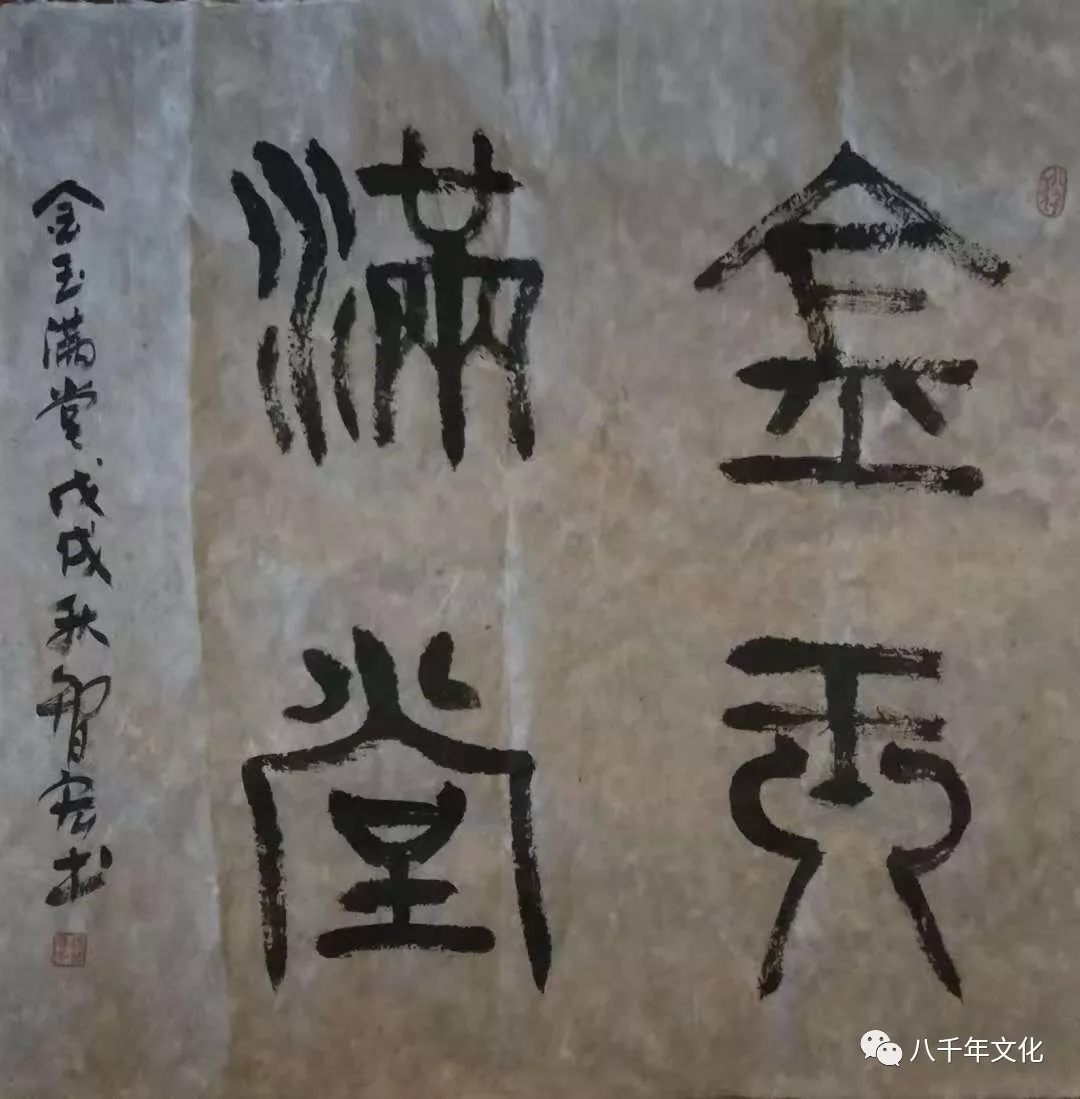 金玉
滿堂
金玉满堂戊戌秋智宏书
八千年文化